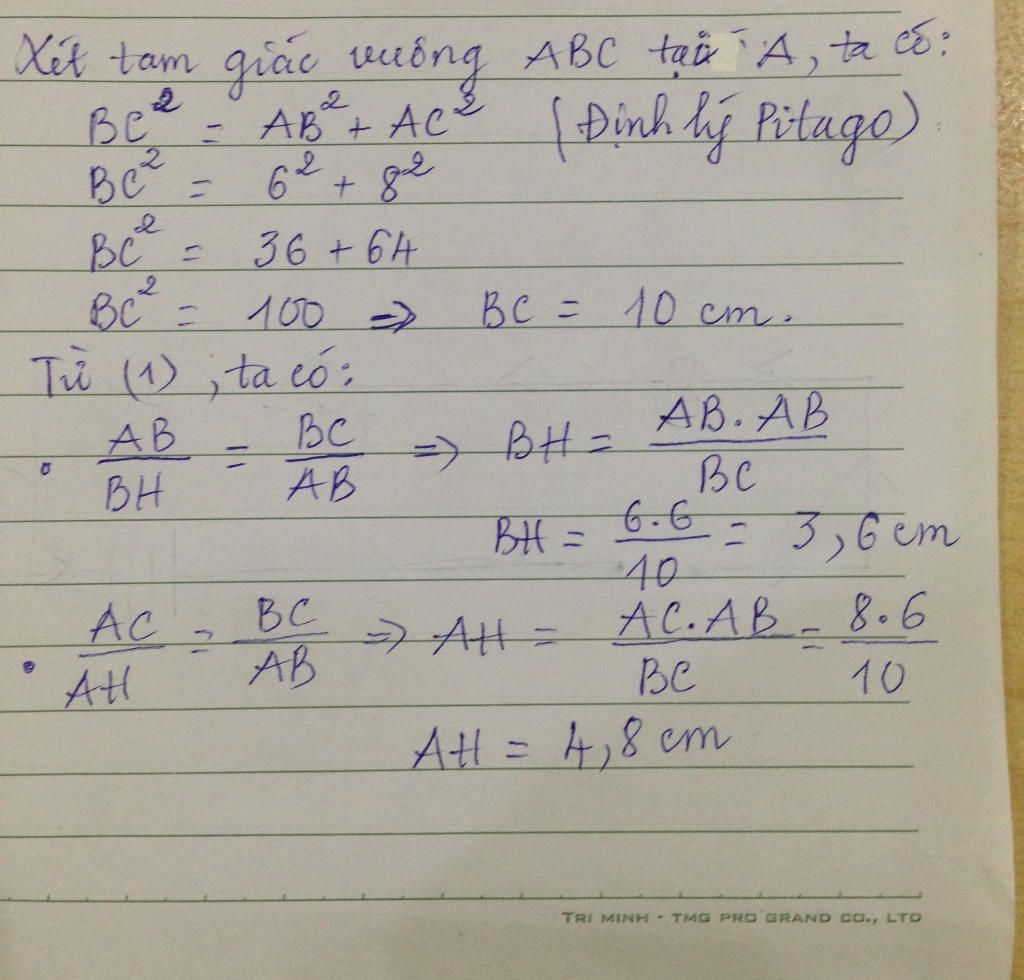 Xét tam giác vuông ABC tại A, ta có:
BC² = AB² + AC² (Định lý Pitago)
BC² = 6² + 8²
BC² = 36 + 64
BC² = 100 => BC = 10 cm.
Từ (1), ta có:
• AB/BH = BC/AB => BH = AB.AB/BC
BH = 6.6/10 = 3,6 cm
• AC/AH = BC/AB => AH = AC.AB/BC = 8.6/10
AH = 4,8 cm
TRI MINH - TMG PRO GRAND CO., LTD